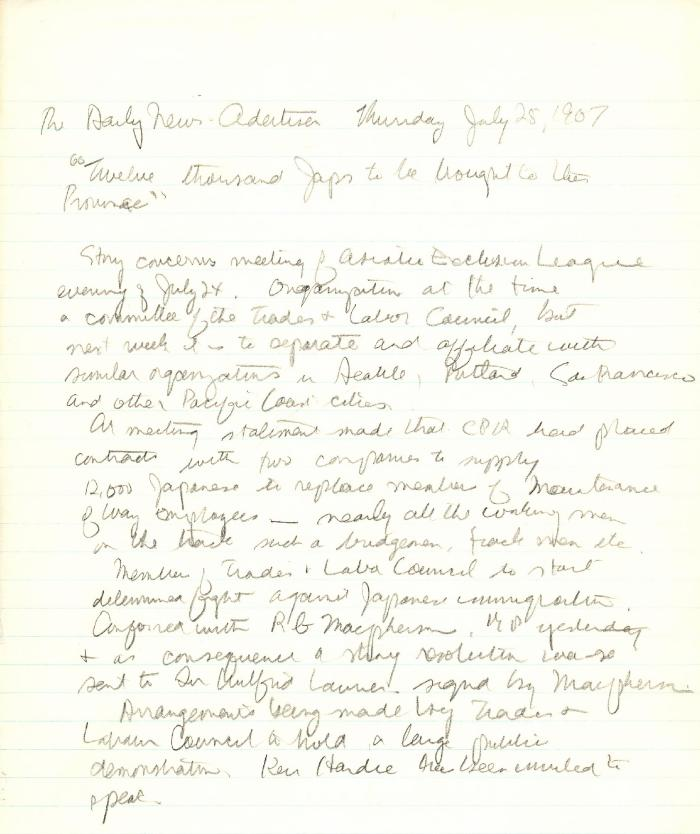 The Daily News-Advertiser Thursday July 25, 1907
"Twelve thousand Japs to be brought to this
Province"
Story concerns meeting of Asiatic Exclusion League
evening of July 24. Organization at the time
a committee of the Trades & Labor Council, but
next week it is to separate and affiliate with
similar organizations in Seattle, Portland, San Francisco
and other Pacific Coast cities.
At meeting statement made that CPR had placed
contracts with two companies to supply
12,000 Japanese to replace members of Maintenance
of Way Employees — nearly all the working men
on the track such as bridgemen, track men etc.
Members of Trades & Labor Council to start
determined fight against Japanese immigration.
Conferred with R G Macpherson, MP yesterday
& as consequence a strong resolution was
sent to Sir Wilfrid Laurier signed by Macpherson.
Arrangements being made by Trades &
Labour Council to hold a large public
demonstration. Keir Hardie has been invited to
speak.